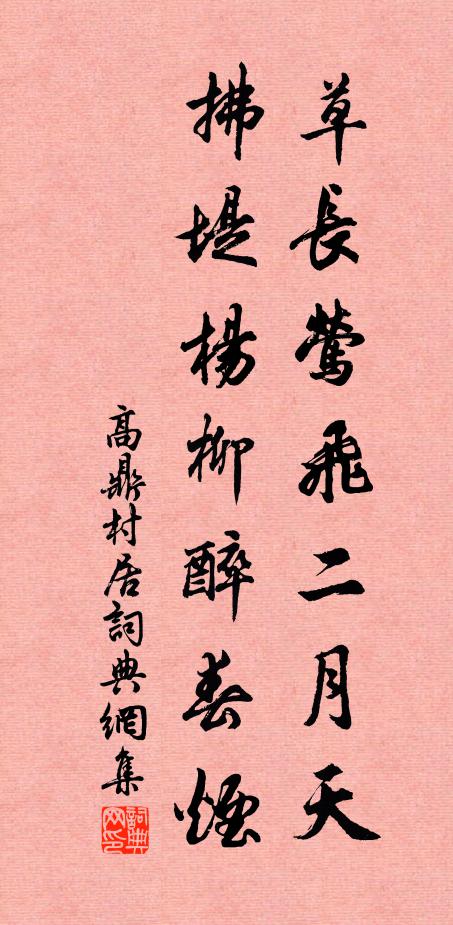 草長鶯飛二月天
拂堤楊柳醉春煙
高鼎村居詞典網集
詞典网印